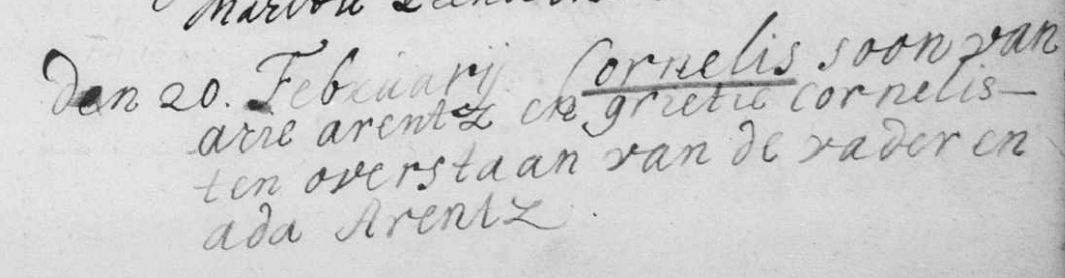 den 20. Februarij Cornelis soon van
arie arentz en grietie cornelis—
ten overstaan van de vader en
ada Arentz